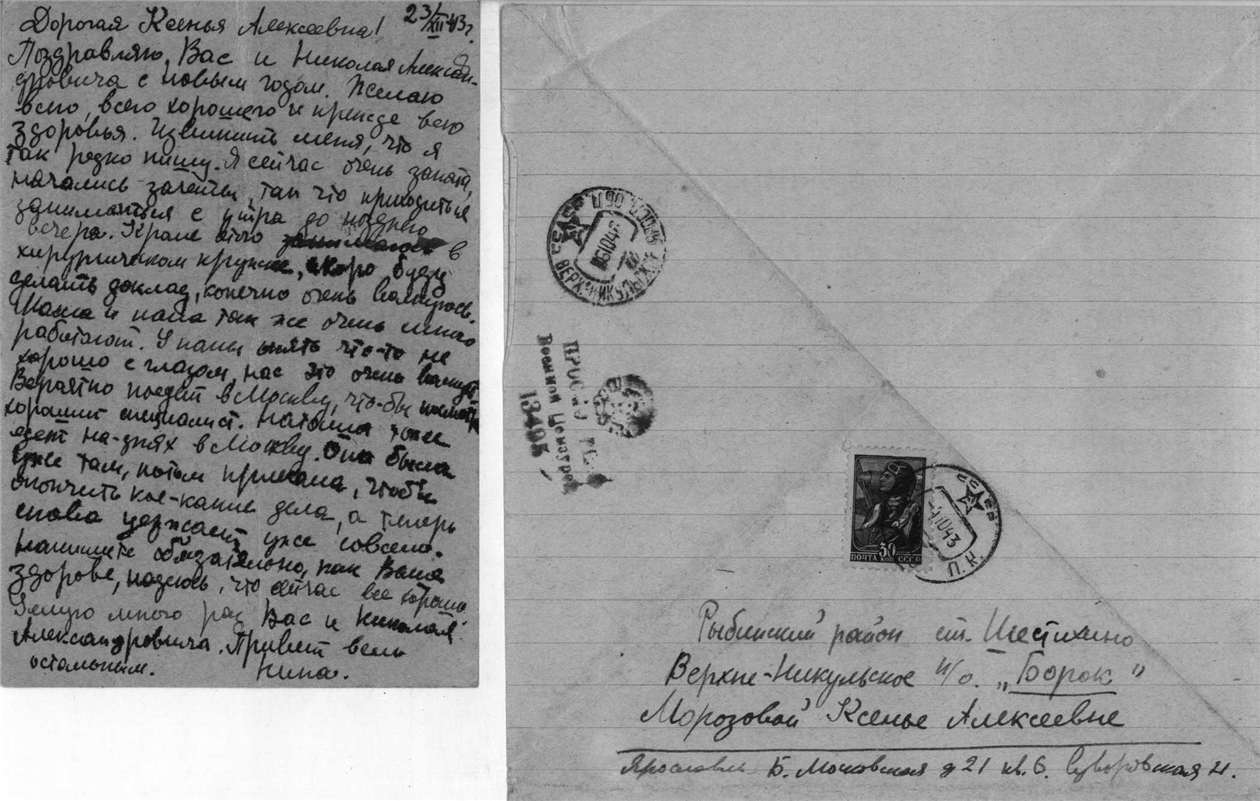 23/XII-43г.
Дорогая Ксенья Алексеевна!
Поздравляю Вас и Николая Алексан-
дровича с новым годом. Желаю
всего, всего хорошего и прежде всего
здоровья. Извините меня, что я
так редко пишу. Я сейчас очень занята,
начались зачеты, так что приходиться
заниматься с утра до позднего
вечера. Кроме этого в
хирургическом кружке, скоро буду
делать доклад, конечно очень волнуюсь.
Мама и папа так же очень много
работают. У папы опять что-то не
хорошо с глазом, нас это очень волнует.
Вероятно поедет в Москву, что-бы
хороший специалист. Наташа тоже
едет на-днях в Москву. Она была
уже там, потом приехала, чтобы
окончить кое-какие дела, а теперь
снова уезжает уже совсем.
Напишите обязательно, как Ваше
здоровье, надеюсь, что сейчас все хорошо
Целую много раз Вас и Николая
Александровича. Привет всем
остальным. Нина.
СССР
ВЕРХ-НИКУЛЬСКОЕ
ПРОСМОТРЕНО
Военной Цензурой
13405
30
ПОЧТА КОП СССР
СССР
-41043
П.К.
Рыбинский район ст. Шестихино
Верхне-Никульское п/о. „Борок"
Морозовой Ксенье Алексеевне
Ярославль Б. Московская д 21 кв. 6. Суворовская Н.